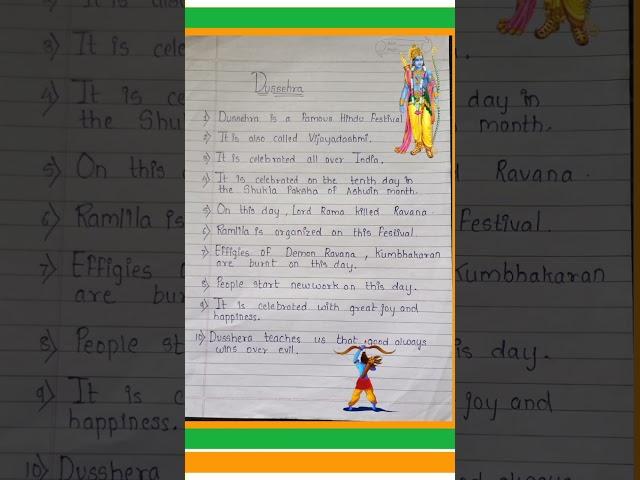 Dussehra
1) Dussehra is a famous Hindu Festival
2) It is also called Vijayadashmi.
3) It is celebrated all over India.
4) It is celebrated on the tenth day in
the Shukla Paksha of Ashwin month.
5) On this day, Lord Rama killed Ravana.
6) Ramlila is organized on this Festival.
7) Effigies of Demon Ravana, Kumbhakaran
are burnt on this day.
8) People start new work on this day.
9) It is celebrated with great joy and
happiness.
10) Dusshera teaches us that good always
wins over evil.